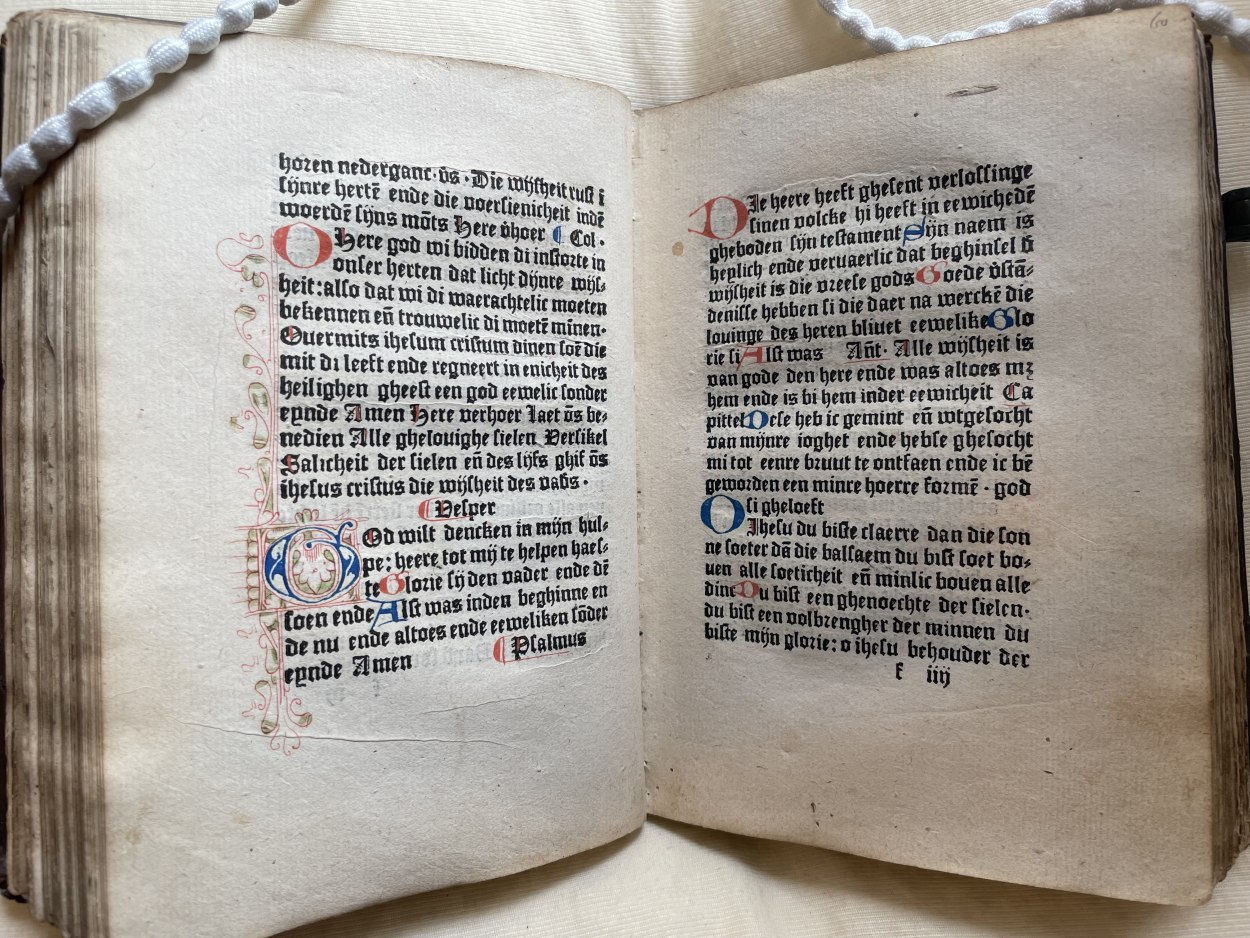 horen nederganc·ďs·Die wijsheit rust ī
sijnre hertē ende die voersienicheit indē
woerdē sijns mōts Here v̓hoer ¶ Col·
O Here god wi bidden di instorte in
onser herten dat licht dijnre wijs⸗
heit: also dat wi di waerachtelic moeten
bekennen eñ trouwelic di moetē minen·
Ouermits ihesum cristum dinen soē die
mit di leeft ende regneert in enicheit des
heilighen gheest een god eewelic sonder
eynde Amen Here verhoer Laet ōs be⸗
nedien Alle ghelouighe sielen Versikel
Salicheit der sielen eñ des lijfs ghif ōs
ihesus cristus die wijsheit des vads·
¶ Vesper
GOd wilt dencken in mijn hul⸗
pe: heere tot mij te helpen haes⸗
te Glorie sij den vader ende dē
soen ende Alst was inden beghinne en
de nu ende altoes ende eeweliken sōder
eynde Amen ¶ Psalmus
60
DIe heere heeft ghesent verlossinge
sinen volcke hi heeft in eewichedē
gheboden sijn testament Sijn naem is
heylich ende veruaerlic dat beghinsel ď
wijsheit is die vreese gods Goede v̓stā⸗
denisse hebben si die daer na werckē die
louinge des heren bliuet eewelike Glo
rie si Alst was Añt· Alle wijsheit is
van gode den here ende was altoes mꝫ
hem ende is bi hem inder eewicheit Ca
pittel Dese heb ic gemint eñ wtgesocht
van mijnre ioghet ende hebse ghesocht
mi tot eenre bruut te ontfaen ende ic bē
geworden een minre hoerre formē · god
si gheloeft
O Ihesu du biste claerre dan die son
ne soeter dā die balsaem du bist soet bo⸗
uen alle soeticheit eñ minlic bouen alle
dinc Du bist een ghenoechte der sielen·
du bist een volbrengher der minnen du
biste mijn glorie: o ihesu behouder der
k iiij